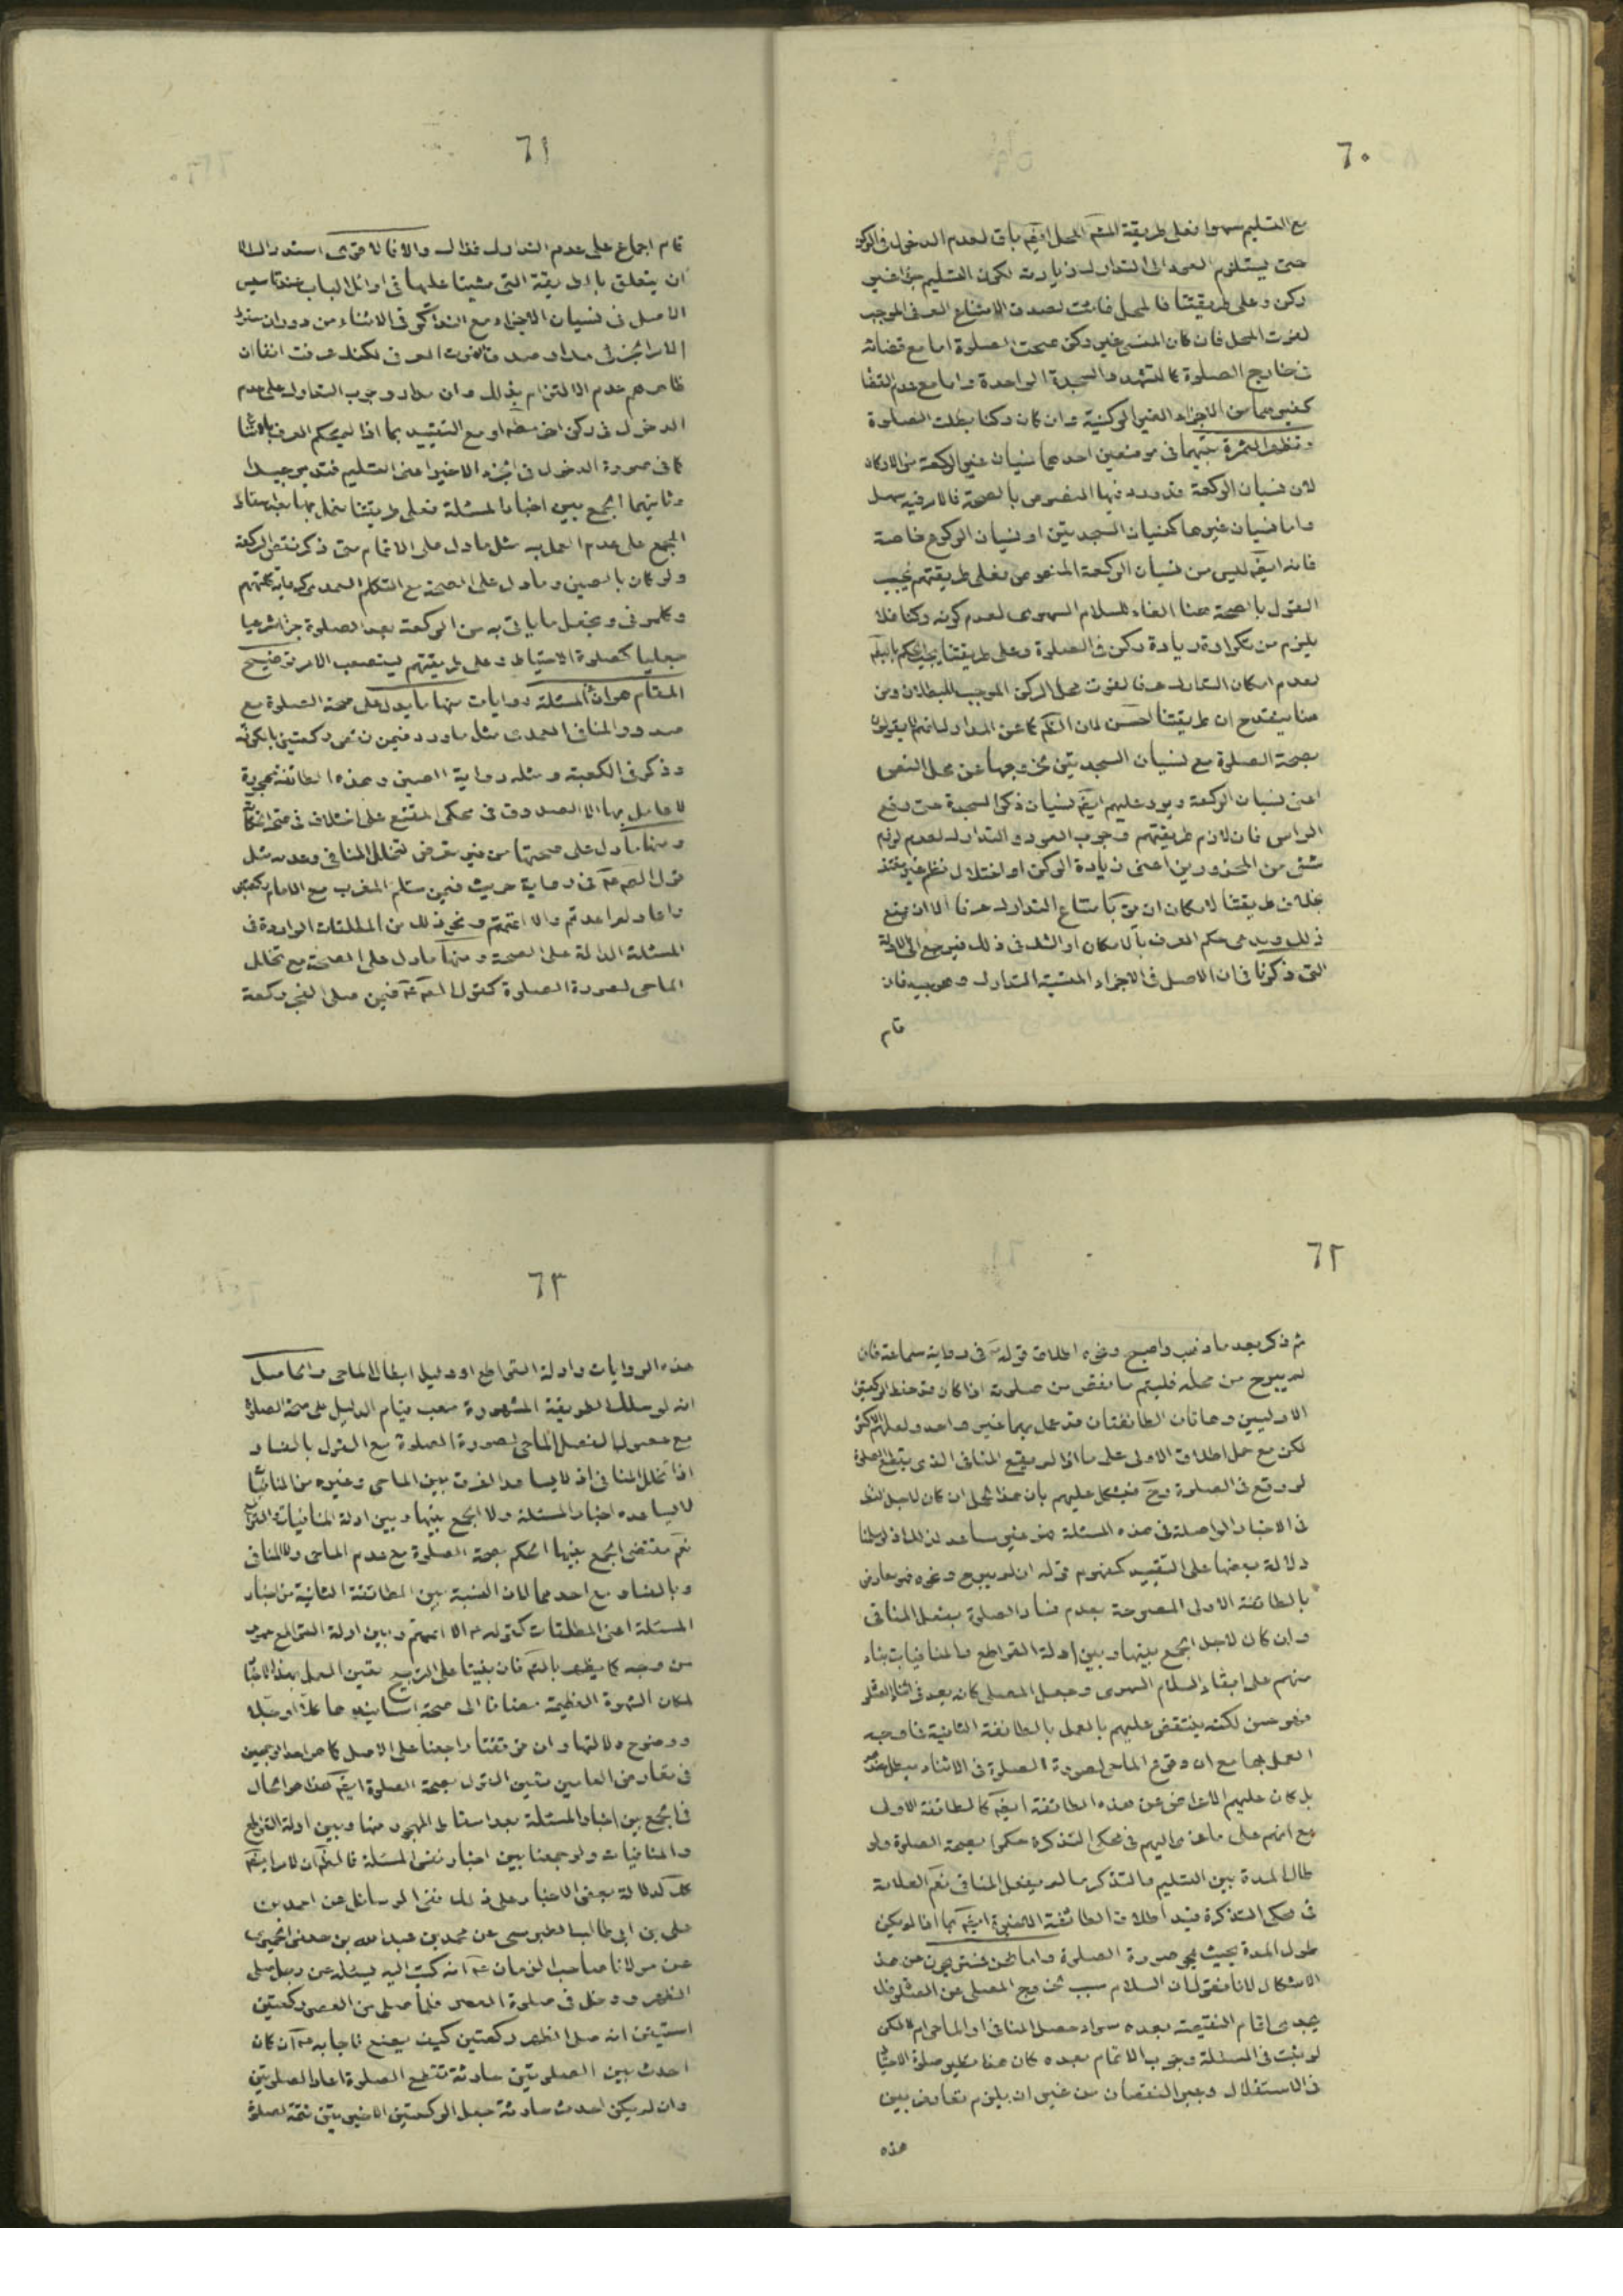 ٦٠
مع التسليم سهوا فعلى طريقة المشهور المحل ايضا باق لعدم الدخول في الركن
حتى يستلزم العود الى التدارك زيادته لكون التسليم جزا غير
ركن وعلى طريقتنا فالمحل فائت لصدق الامتناع العرفي الموجب
لفوت المحل فان كان المنسي غير ركن صحت الصلوة اما مع قضائه
في خارج الصلوة كالتشهد والسجدة الواحدة واما مع عدم القضا
كغيرهما من الاجزاء الغير الركنية وان كان ركنا بطلت الصلوة
وتظهر الثمرة بينهما في موضعين احدهما نسيان غير الركعة من الاركان
لان نسيان الركعة قد ورد فيها النصوص بالصحة فالامر فيه سهل
واما نسيان غيرها كنسيان السجدتين او نسيان الركوع خاصة
فانه ايضا ليس من نسيان الركعة المنصوص فعلى طريقتهم يجب
القول بالصحة هنا الغاء للسلام السهوى لعدم كونه ركنا فلا
يلزم من تكراره زيادة ركن في الصلوة وعلى طريقتنا يجب الحكم بالبطلان
لعدم امكان التدارك عرفا لفوت محل الركن الموجب للبطلان ومن
هنا ينقدح ان طريقتنا احسن لان الحكم كما عن المدارك انهم لا يقولون
بصحة الصلوة مع نسيان السجدتين لخروجها عن محل النص
اعنى نسيان الركعة ويرد عليهم ايضا نسيان ذكر السجدة حتى رفع
الراس فان لازم طريقتهم وجوب العود والتدارك لعدم لزوم
شئ من المحذورين اعنى زيادة الركن او اختلال نظم غير مغتفر
بخلاف طريقتنا لامكان ان يق بامتناع التدارك عرفا الا ان يمنع
ذلك ويدعى حكم العرف بالامكان او الشك في ذلك فيرجع الى الادلة
التى ذكرنا في ان الاصل في الاجزاء المنسية التدارك وهو بعيد فان
قام
٦١
قام اجماع على عدم التدارك فذاك والا فالاقوى استدراك الا
ان يتعلق بالطريقة التى مشينا عليها في اوائل الباب عند تاسيس
الاصل في نسيان الاجزاء مع التذكر في الاثناء من دوران سقوط
الامر الجزئى مدار صدق الفوت العرفى لكنك عرفت انفا ان
ظاهرهم عدم الالتزام بذلك وان مدار وجوب التدارك على عدم
الدخول في ركن اخر مطلقا او مع التقييد بما اذا لم يحكم العرف بالامتناع
كما في صورة الدخول في الجزء الاخير اعنى التسليم فتدبر جيدا
وثانيهما الجمع بين اخبار المسئلة فعلى طريقتنا نعمل بها بعد اسقاط
المجمع على عدم العمل به مثل ما دل على الاتمام متى ذكر نقص الركعة
ولو كان بالصين وما دل على الصحة مع التكلم العمدى كرواية كلمتهم
وكلمونى ونجعل ما ياتى به من الركعة بعد الصلوة جزا شرعيا
جعليا كصلوة الاحتياط وعلى طريقتهم يستصعب الامر توضيح
المقام هو ان في المسئلة روايات منها ما يدل على صحة الصلوة مع
صدور المنافى العمدى مثل ما ورد فيمن نسى ركعتين بالكوفة
وذكر في الكعبة ومثله رواية الصين وهذه الطائفة مهجورة
لا عامل بها الا الصدوق في محكى المقنع على اختلاف في صحة الحكاية
ومنها ما دل على صحتها من غير تعرض لتخلل المنافى وعدمه مثل
قول الصادق ع في رواية حريث فيمن سلم المغرب مع الامام ركعتين
واعاد ولم اعدتم والا اتممتم ونحو ذلك من المطلقات الواردة في
المسئلة الدالة على الصحة ومنها ما دل على الصحة مع تخلل
الماحى لصورة الصلوة كقول الصادق ع فيمن صلى الفجر ركعة
٦٢
ثم ذكر بعد ما ذهب واصبح ونحوه اطلاق قوله ع في رواية سماعة فان
لم يبرح من محله فليتم ما نقص من صلوته اذا كان قد حفظ الركعتين
الاوليين وهاتان الطائفتان قد عمل بهما غير واحد ولعلهم الاكثر
لكن مع حمل اطلاق الاولى على ما اذا لم يقع المنافى الذى يقطع الصلوة
لو وقع في الصلوة وح فيشكل عليهم بان هذا الحمل ان كان لاجل النظر
في الاخبار الواصلة في هذه المسئلة فهو غير مساعد لذلك اذ لو سلمنا
دلالة بعضها على التقييد كمفهوم قوله ان لم يبرح ونحوه فهو معارض
بالطائفة الاولى المصرحة بعدم فساد الصلوة بفعل المنافى
وان كان لاجل الجمع بينها وبين ادلة القواطع والمنافيات بناء
منهم على ابقاء السلام السهوى وجعل المصلى كانه بعد في اثناء الصلوة
فهو حسن لكنه ينتقض عليهم بالعمل بالطائفة الثانية فما وجه
العمل بها مع ان وقوع الماحى لصورة الصلوة في الاثناء مبطل عندهم
بل كان عليهم الاعتراض عن هذه الطائفة ايضا كالطائفة الاولى
مع انهم على ما عزى اليهم في محكى التذكرة حكموا بصحة الصلوة ولو
طال المدة بين التسليم والتذكر ما لم يفعل المنافى نعم العلامة
في محكى التذكرة قيد اطلاق الطائفة الاخيرة ايضا بما اذا لم يكن
طول المدة بحيث يمحو صورة الصلوة واما نحن فمستريحون عن هذا
الاشكال لانا نقول ان السلام سبب لخروج المصلى عن الصلوة فلا
يجدى اتمام النقيصة بعده سواء حصل المنافى او الماحى ام لا لكن
لو ثبت في المسئلة وجوب الاتمام بعده كان هذا نظير صلوة الاحتياط
في الاستقلال وجبر النقصان من غير ان يلزم تعارض بين
هذه
٦٣
هذه الروايات وادلة القواطع او دليل ابطال الماحى والحاصل
انه لو سلك الطريقة المشهورة صعب قيام الدليل على صحة الصلوة
مع حصول الفعل الماحى لصورة الصلوة مع القول بالفساد
اذا تخلل المنافى اذ لا يساعد الفرق بين الماحى وغيره من المنافيات
لا يساعده اخبار المسئلة ولا الجمع بينها وبين ادلة المنافيات والقواطع
نعم مقتضى الجمع بينها الحكم بصحة الصلوة مع عدم الماحى والمنافى
وبالفساد مع احدهما لان النسبة بين الطائفة الثانية من اخبار
المسئلة اعنى المطلقات كقوله ع الا اتممتم وبين ادلة القواطع عموم
من وجه كما يظهر بالتامل فان بنينا على الترجيح تعين العمل بهذه الاخبار
لمكان الشهرة العظيمة مضافا الى صحة اسانيدها كلا او جلا
ووضوح دلالتها وان توقفنا راجعنا على الاصل كما هو احد الوجهين
في تعارض العامين متعين القول بصحة الصلوة ايضا هذا هو الحال
في الجمع بين اخبار المسئلة بعد اسقاط المهجور منها وبين ادلة القواطع
والمنافيات ولو جمعنا بين اخبار نفس المسئلة فالظاهر ان الامر ايضا
كك لدلالة بعض الاخبار على ذلك ففى الوسائل عن احمد بن
على بن ابى طالب الطبرسى عن محمد بن عبد الله بن جعفر الحميرى
عن مولانا صاحب الزمان ع انه كتب اليه يسئله عن رجل صلى
الظهر ودخل في صلوة العصر فلما صلى من العصر ركعتين
استيقن انه صلى الظهر ركعتين كيف يصنع فاجابه ع ان كان
احدث بين الصلوتين حادثة تقطع الصلوة اعاد الصلوتين
وان لم يكن احدث حادثة جعل الركعتين الاخيرتين تتمة لصلوة